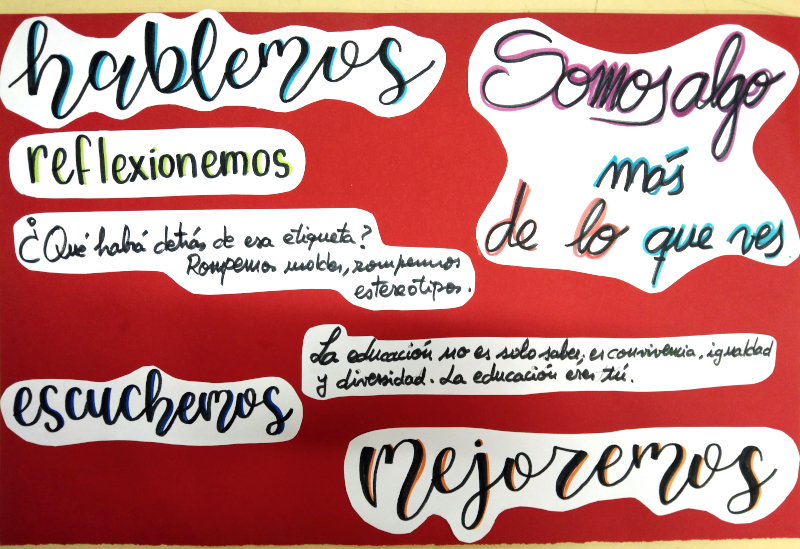 hablemos
Somos algo
más
de lo que ves
reflexionemos
¿Qué habrá detrás de esa etiqueta?
Rompemos moldes, rompemos
estereotipos.
La educación no es solo saber, es convivencia, igualdad
y diversidad. La educación eres tú.
escuchemos
mejoremos